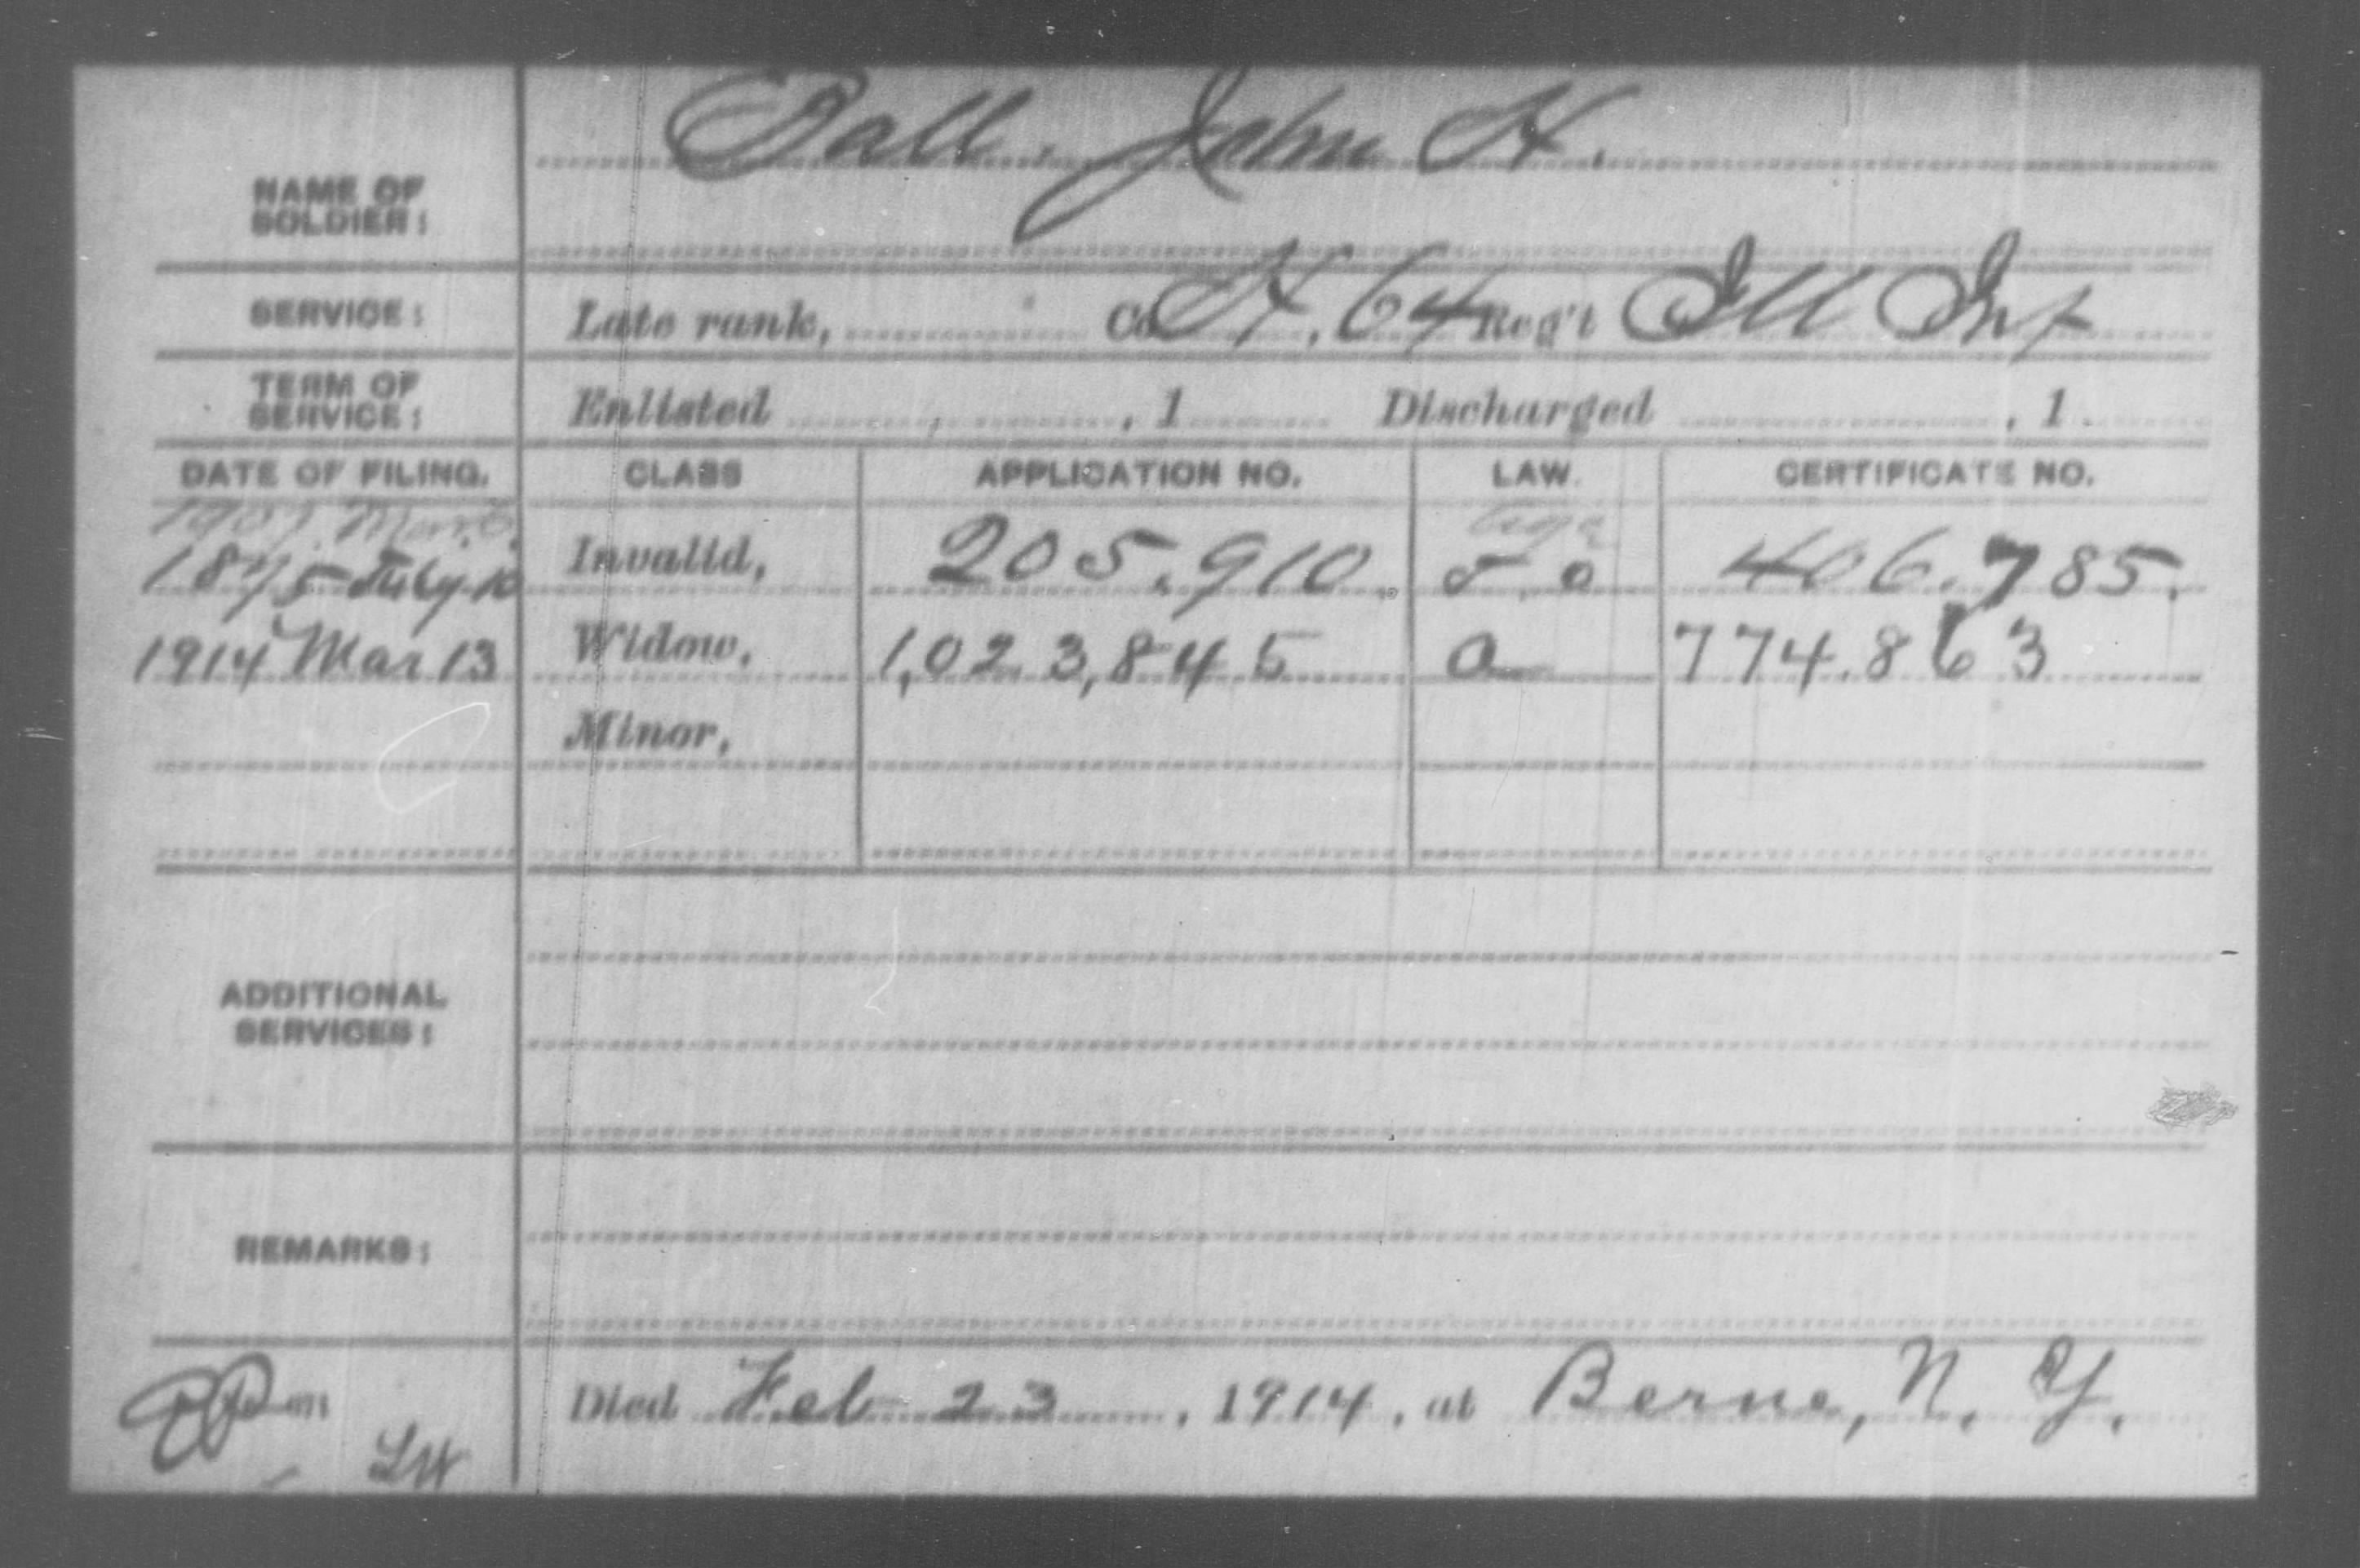 Ball, John H.
NAME OF
SOLDIER:
SERVICE: Late rank, Co H, 64 Reg't Ill Inf
TERM OF
SERVICE: Enlisted , 1 Discharged , 1
DATE OF FILING. CLASS APPLICATION NO. LAW. CERTIFICATE NO.
1907 Mar. 6. Age
1875 July 10 Invalid, 205.910. 406.785.
1914 Mar 13 Widow, 1,023,845 a 774.863
Minor,
ADDITIONAL
SERVICES:
REMARKS:
Died Feb 23, 1914, at Berne, N. Y.